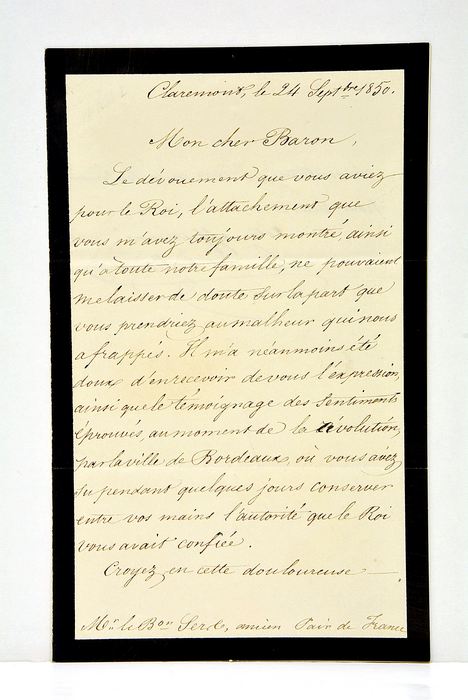 Claremont, le 24 Septbre 1850.
Mon cher Baron,
Le dévouement que vous aviez
pour le Roi, l'attachement que
vous m'avez toujours montré, ainsi
qu'à toute notre famille, ne pouvaient
me laisser de doute sur la part que
vous prendriez au malheur qui nous
a frappés. Il m'a néanmoins été
doux d'en recevoir de vous l'expression,
ainsi que le témoignage des sentiments
éprouvés, au moment de la révolution,
par la ville de Bordeaux, où vous avez
su pendant quelques jours conserver
entre vos mains l'autorité que le Roi
vous avait confiée.
Croyez, en cette douloureuse
Mr. le Bon Serc, ancien Pair de France